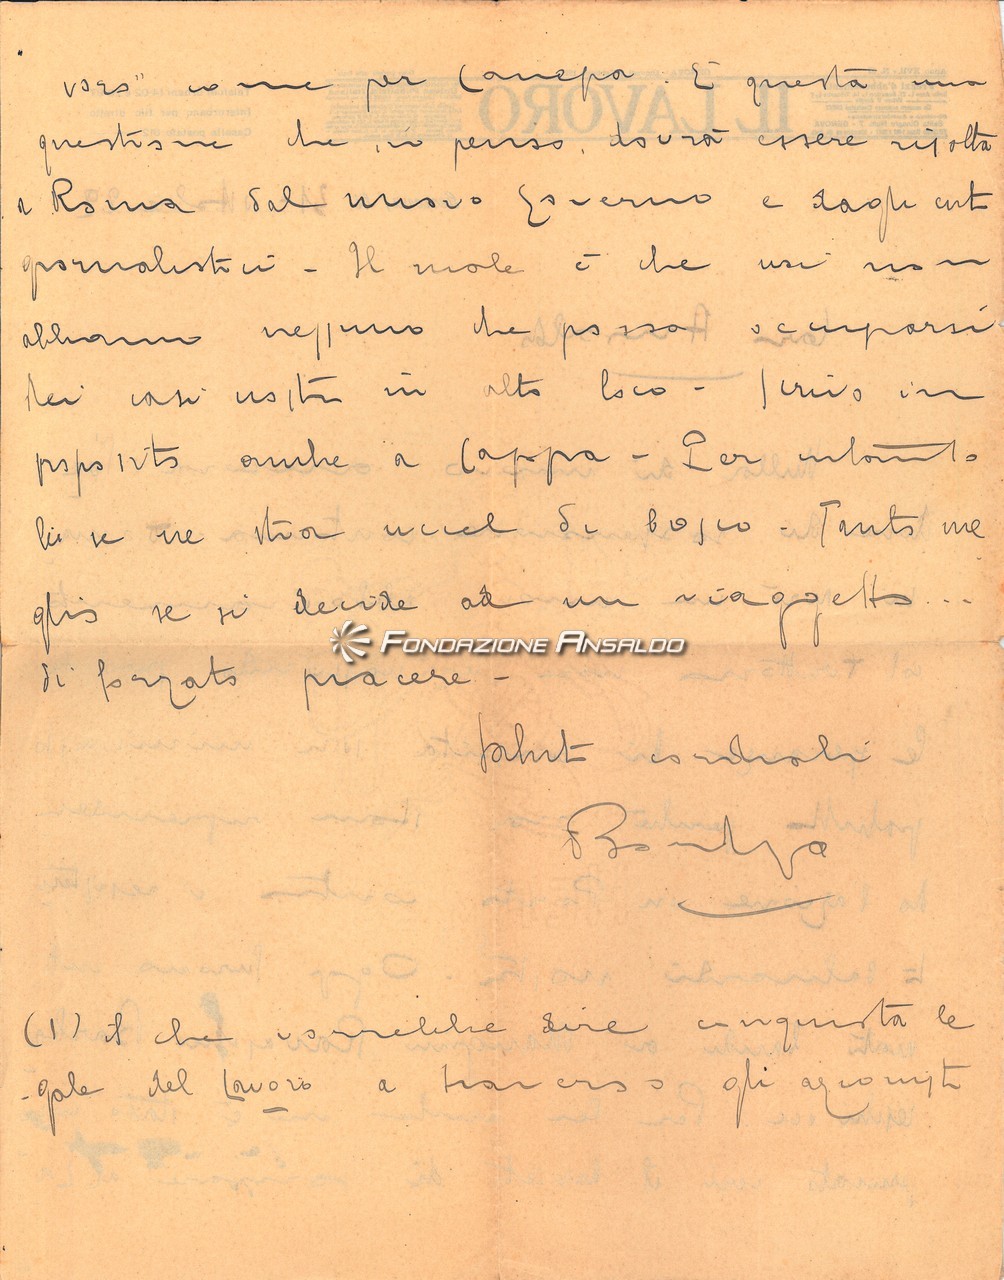 vers" come per Canepa. E' questa una
questione che, io penso, dovrà essere risolta
a Roma dal nuovo Governo e dagli enti
giornalistici - Il male è che noi non
abbiamo neppure che possa occuparsi
dei casi nostri in alto loco - Scrivo in
proposito anche a Cappa - Per intanto
lui se ne sta uccel di bosco - Tanto me
glio se si decide ad un viaggetto...
di forzato piacere -
FONDAZIONE ANSALDO
Saluti cordiali
(1) il che vorrebbe dire conquista le
-gale del Lavoro a traverso gli azionisti